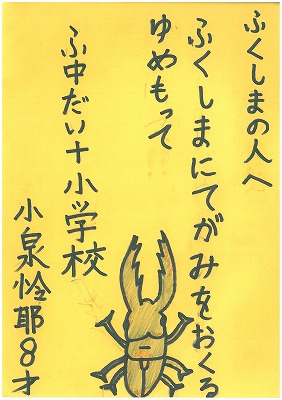 ふくしまの人へ
ふくしまにてがみをおくる
ゆめもって
ふ中だい十小学校
小泉怜耶8才